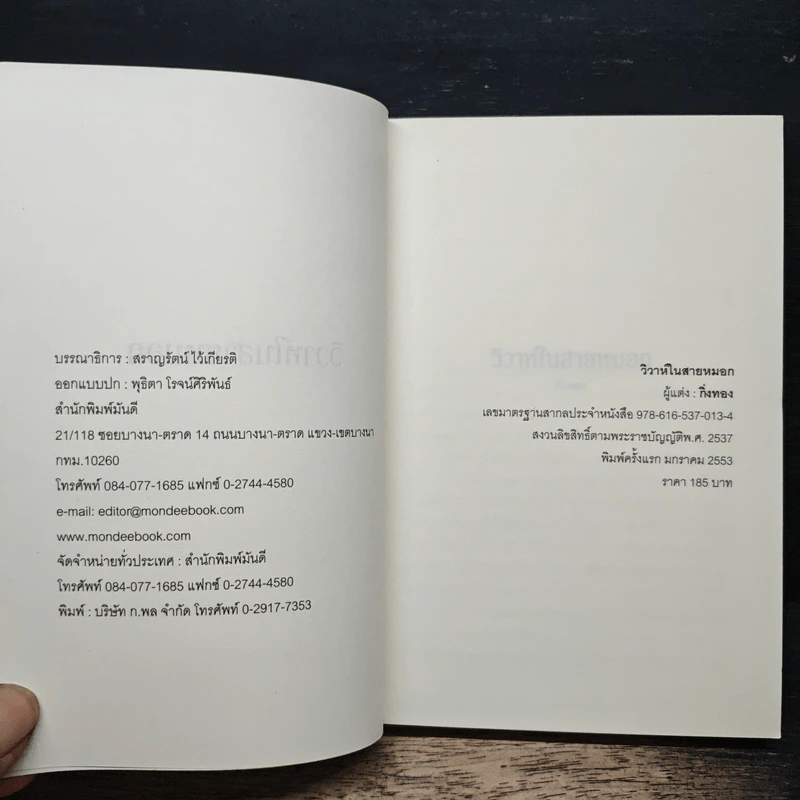 บรรณาธิการ : สราญรัตน์ ไว้เกียรติ
ออกแบบปก : พุธิตา โรจน์ศิริพันธ์
สำนักพิมพ์มันดี
21/118 ซอยบางนา-ตราด 14 ถนนบางนา-ตราด แขวง-เขตบางนา
กทม.10260
โทรศัพท์ 084-077-1685 แฟกซ์ 0-2744-4580
e-mail: editor@mondeebook.com
www.mondeebook.com
จัดจำหน่ายทั่วประเทศ : สำนักพิมพ์มันดี
โทรศัพท์ 084-077-1685 แฟกซ์ 0-2744-4580
พิมพ์ : บริษัท ก.พล จำกัด โทรศัพท์ 0-2917-7353
วิวาห์ในสายหมอก
ผู้แต่ง : กิ่งทอง
เลขมาตรฐานสากลประจำหนังสือ 978-616-537-013-4
สงวนลิขสิทธิ์ตามพระราชบัญญัติพ.ศ. 2537
พิมพ์ครั้งแรก มกราคม 2553
ราคา 185 บาท